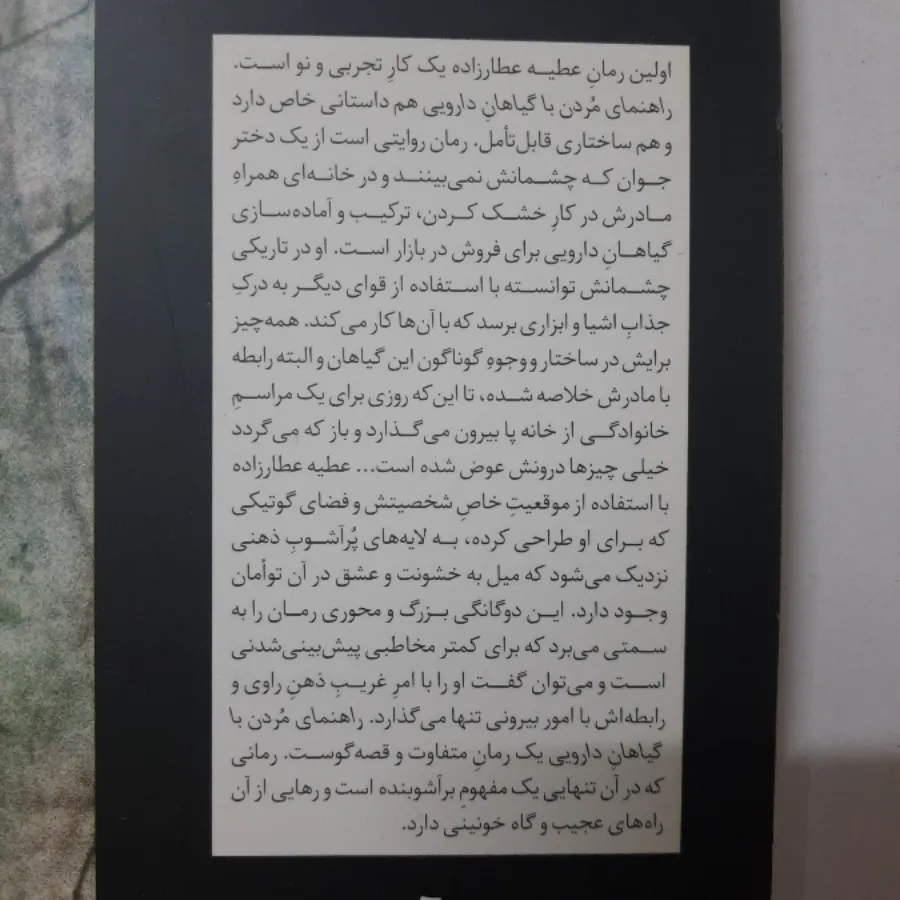 اولین رمانِ عطیه عطارزاده یک کارِ تجربی و نو است.
راهنمای مُردن با گیاهانِ دارویی هم داستانی خاص دارد
و هم ساختاری قابل‌تأمل. رمان روایتی است از یک دختر
جوان که چشمانش نمی‌بینند و در خانه‌ای همراهِ
مادرش در کارِ خشک کردن، ترکیب و آماده‌سازی
گیاهانِ دارویی برای فروش در بازار است. او در تاریکی
چشمانش توانسته با استفاده از قوای دیگر به درکِ
جذابِ اشیا و ابزاری برسد که با آن‌ها کار می‌کند. همه‌چیز
برایش در ساختار و وجوهِ گوناگون این گیاهان و البته رابطه
با مادرش خلاصه شده، تا این‌که روزی برای یک مراسمِ
خانوادگی از خانه پا بیرون می‌گذارد و باز که می‌گردد
خیلی چیزها درونش عوض شده است... عطیه عطارزاده
با استفاده از موقعیتِ خاصِ شخصیتش و فضای گوتیکی
که برای او طراحی کرده، به لایه‌های پُرآشوبِ ذهنی
نزدیک می‌شود که میل به خشونت و عشق در آن توأمان
وجود دارد. این دوگانگی بزرگ و محوری رمان را به
سمتی می‌برد که برای کمتر مخاطبی پیش‌بینی‌شدنی
است و می‌توان گفت او را با امرِ غریبِ ذهنِ راوی و
رابطه‌اش با امور بیرونی تنها می‌گذارد. راهنمای مُردن با
گیاهانِ دارویی یک رمانِ متفاوت و قصه‌گوست. رمانی
که در آن تنهایی یک مفهومِ برآشوبنده است و رهایی از آن
راه‌های عجیب و گاه خونینی دارد.